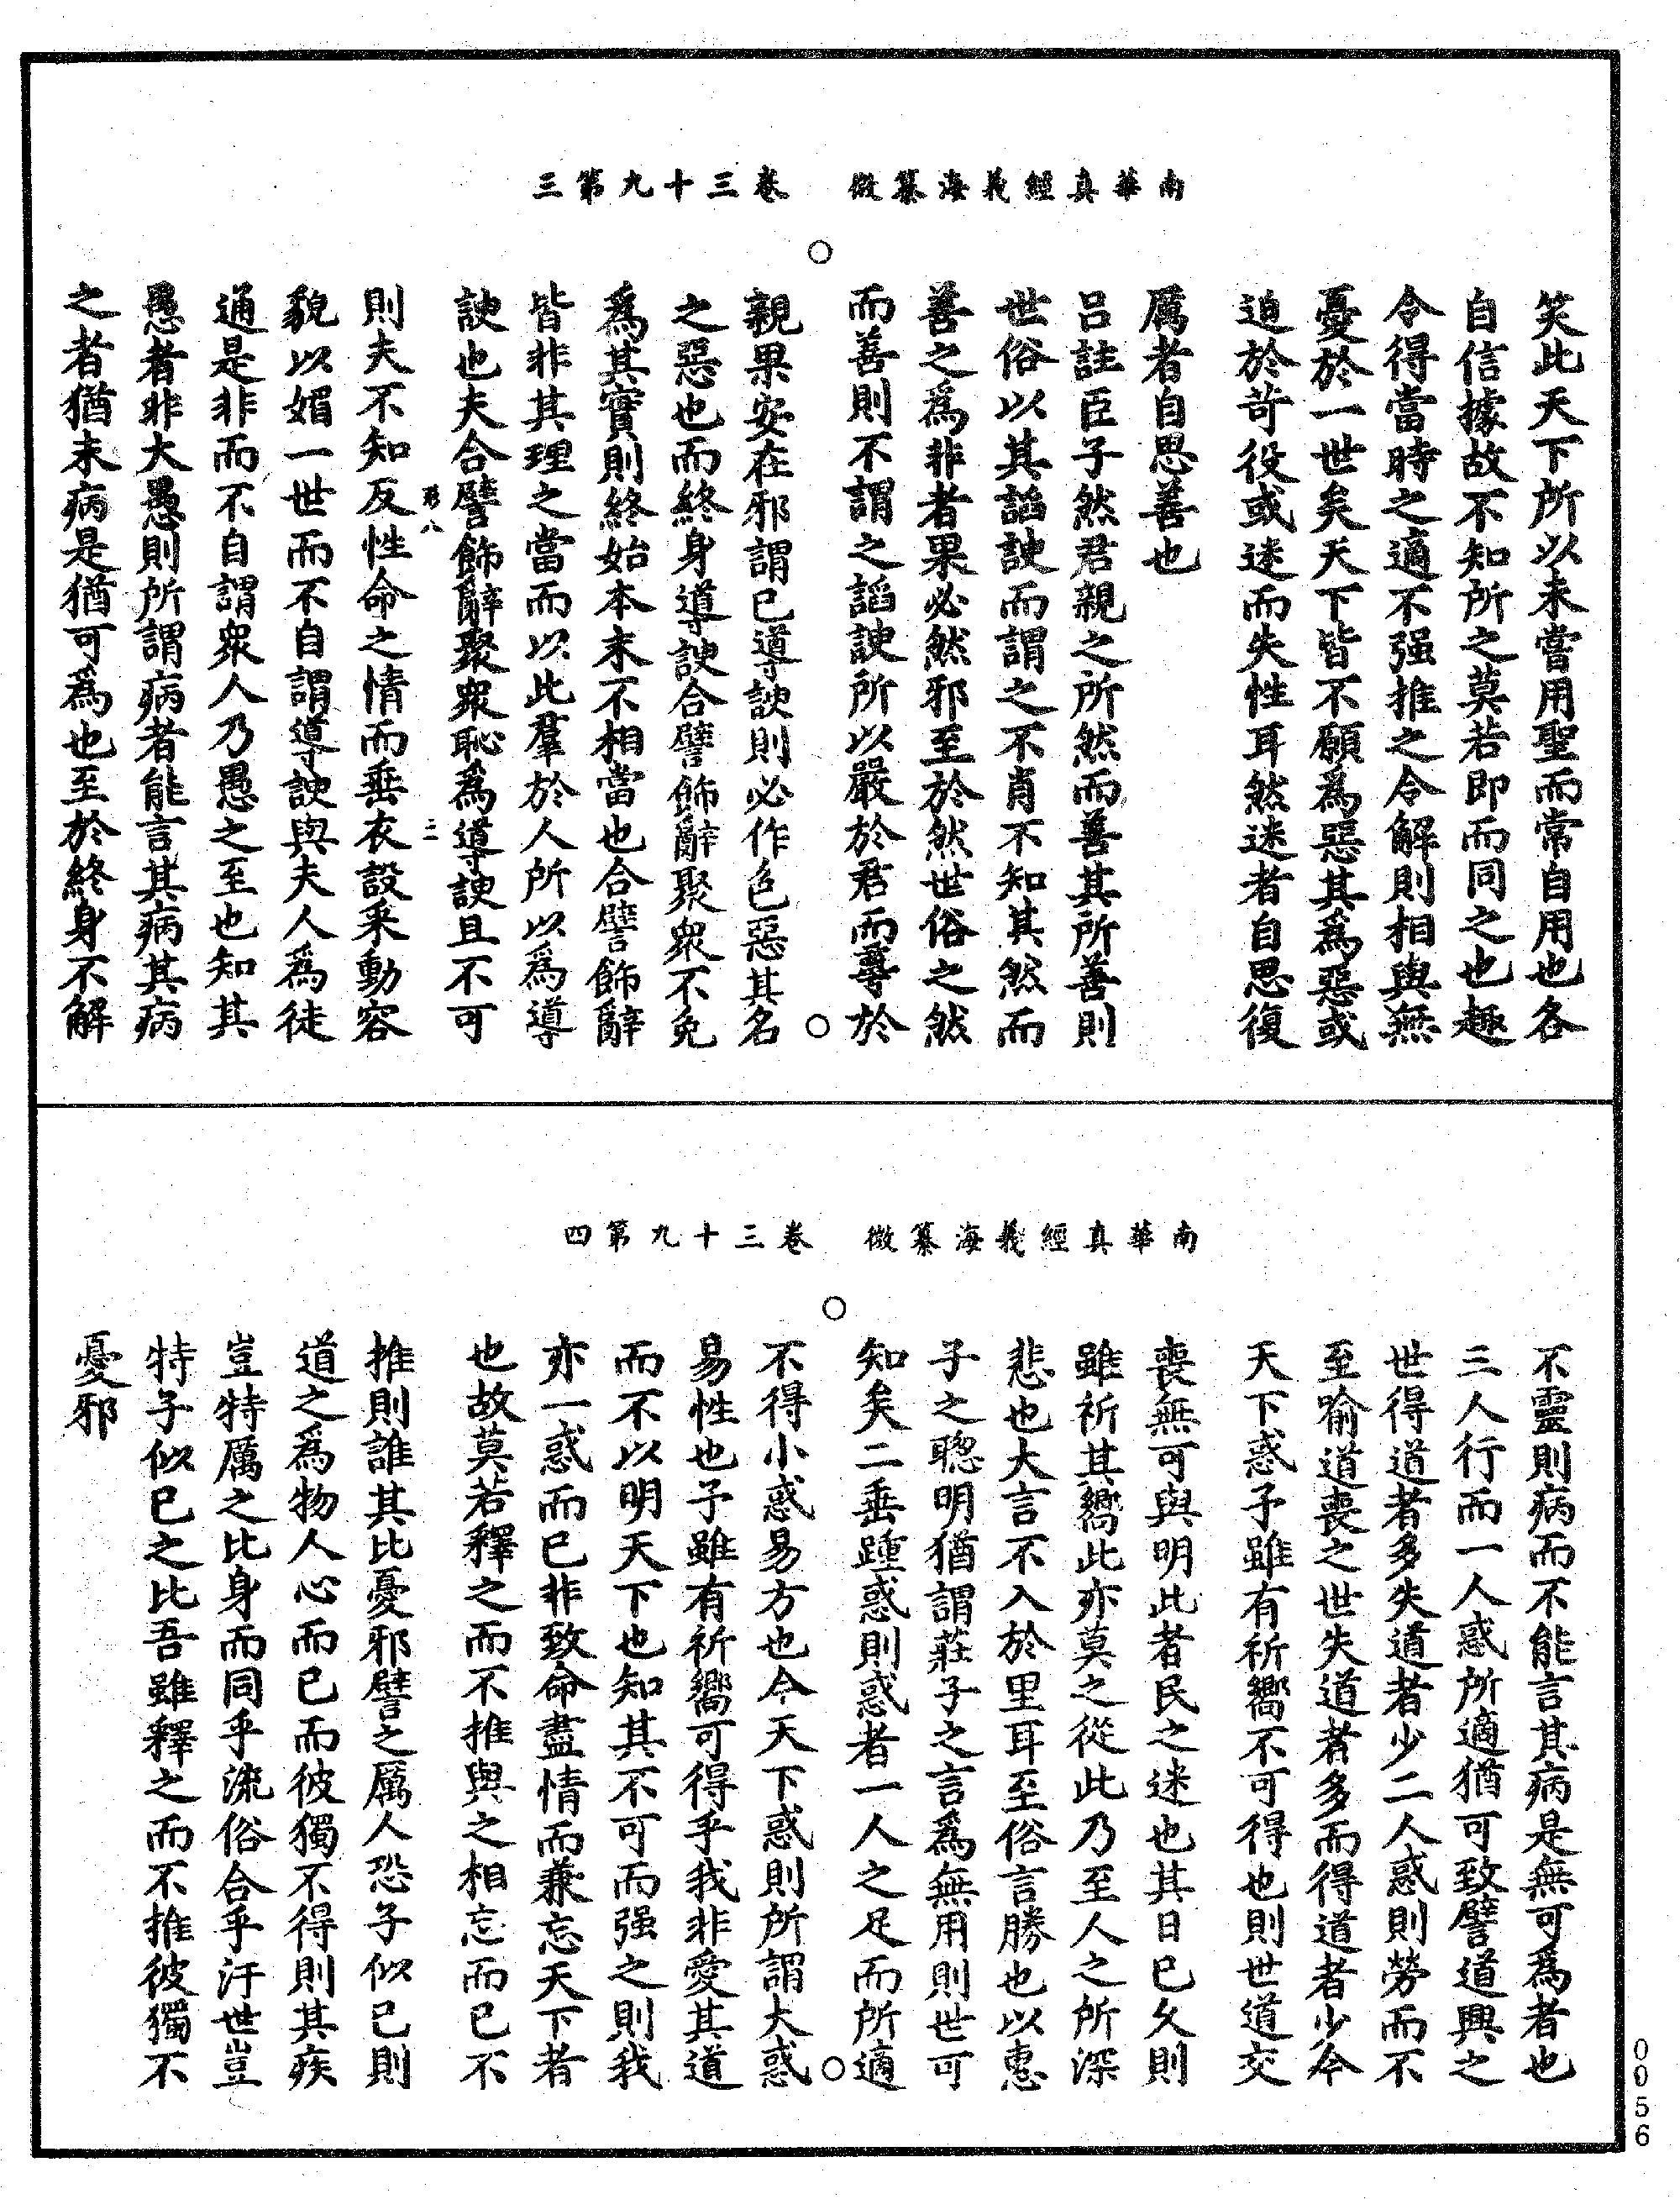 南華真經義海纂微　卷三十九第三
笑此天下所以未嘗用聖而常自用也各
自信據故不知所之莫若即而同之也趣
令得當時之適不强推之令解則相與無
憂於一世矣天下皆不願爲惡其爲惡或
迫於苛役或迷而失性耳然迷者自思復
厲者自思善也
呂註臣子然君親之所然而善其所善則
世俗以其謟諛而謂之不肖不知其然而
善之爲非者果必然邪至於然世俗之然
而善則不謂之謟諛所以嚴於君而尊於
親果安在邪謂已導諛則必作色惡其名
之惡也而終身導諛合譬飾辭聚衆不免
爲其實則終始本末不相當也合譬飾辭
皆非其理之當而以此羣於人所以爲導
諛也夫合譬飾辭聚衆恥爲導諛且不可
則夫不知反性命之情而垂衣設采動容
貌以媚一世而不自謂導諛與夫人爲徒
通是非而不自謂衆人乃愚之至也知其
愚者非大愚則所謂病者能言其病其病
之者猶未病是猶可爲也至於終身不解
南華真經義海纂微　卷三十九第四
不靈則病而不能言其病是無可爲者也
三人行而一人惑所適猶可致譬道興之
世得道者多失道者少二人惑則勞而不
至喻道喪之世失道者多而得道者少今
天下惑予雖有祈嚮不可得也則世道交
喪無可與明此者民之迷也其日已久則
雖祈其嚮此亦莫之從此乃至人之所深
悲也大言不入於里耳至俗言勝也以惠
子之聰明猶謂莊子之言爲無用則世可
知矣二垂踵惑則惑者一人之足而所適
不得小惑易方也今天下惑則所謂大惑
易性也予雖有祈嚮可得乎我非愛其道
而不以明天下也知其不可而强之則我
亦一惑而已非致命盡情而兼忘天下者
也故莫若釋之而不推與之相忘而已不
推則誰其比憂邪譬之厲人恐子似己則
道之爲物人心而已而彼獨不得則其疾
豈特厲之比身而同乎流俗合乎汙世豈
特子似已之比吾雖釋之而不推彼獨不
憂邪
0056